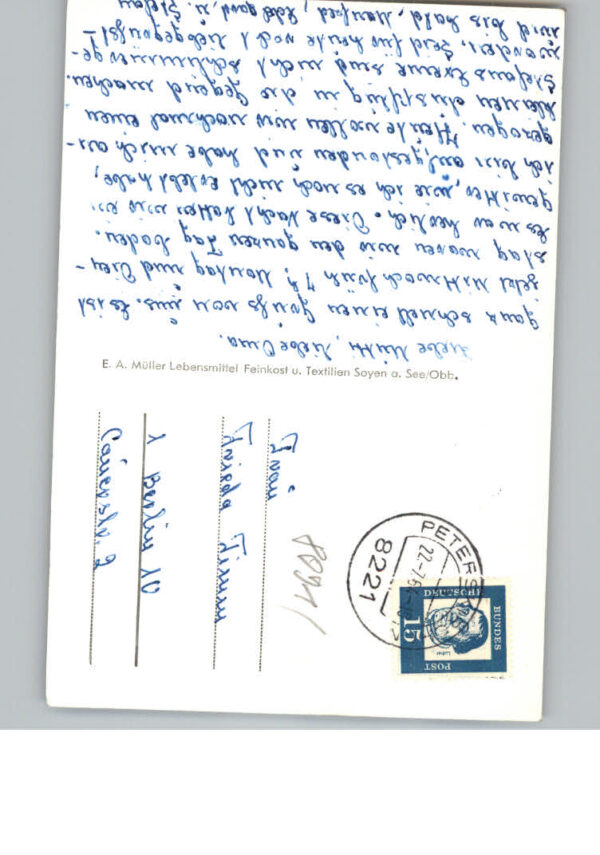 Liebe Mutti, liebe Oma.
ganz schnell einen Gruß von uns. Es ist
jetzt Mittwoch früh 7 h, Montag und Dien-
stag waren wir den ganzen Tag baden.
Es war herrlich. Diese Nacht hatten wir ein
gewitter, wie ich es noch nicht erlebt habe,
ich bin aufgestanden und habe mich an-
gezogen. Heute wollen wir nochmal einen
kleinen Ausflug in die Gegend machen.
Stefans Beine sind nicht schlimmer ge-
worden. Seid für heute recht lieb gegrüßt
und bis bald, Manfred, Edelgard, u. Stefan
E. A. Müller Lebensmittel Feinkost u. Textilien Soyen a. See/Obb.
Frau
Frieda Timm
1 Berlin 10
Cauerstr. 2
8221
22.-7.
DEUTSCHE
BUNDES
POST
15
Luther